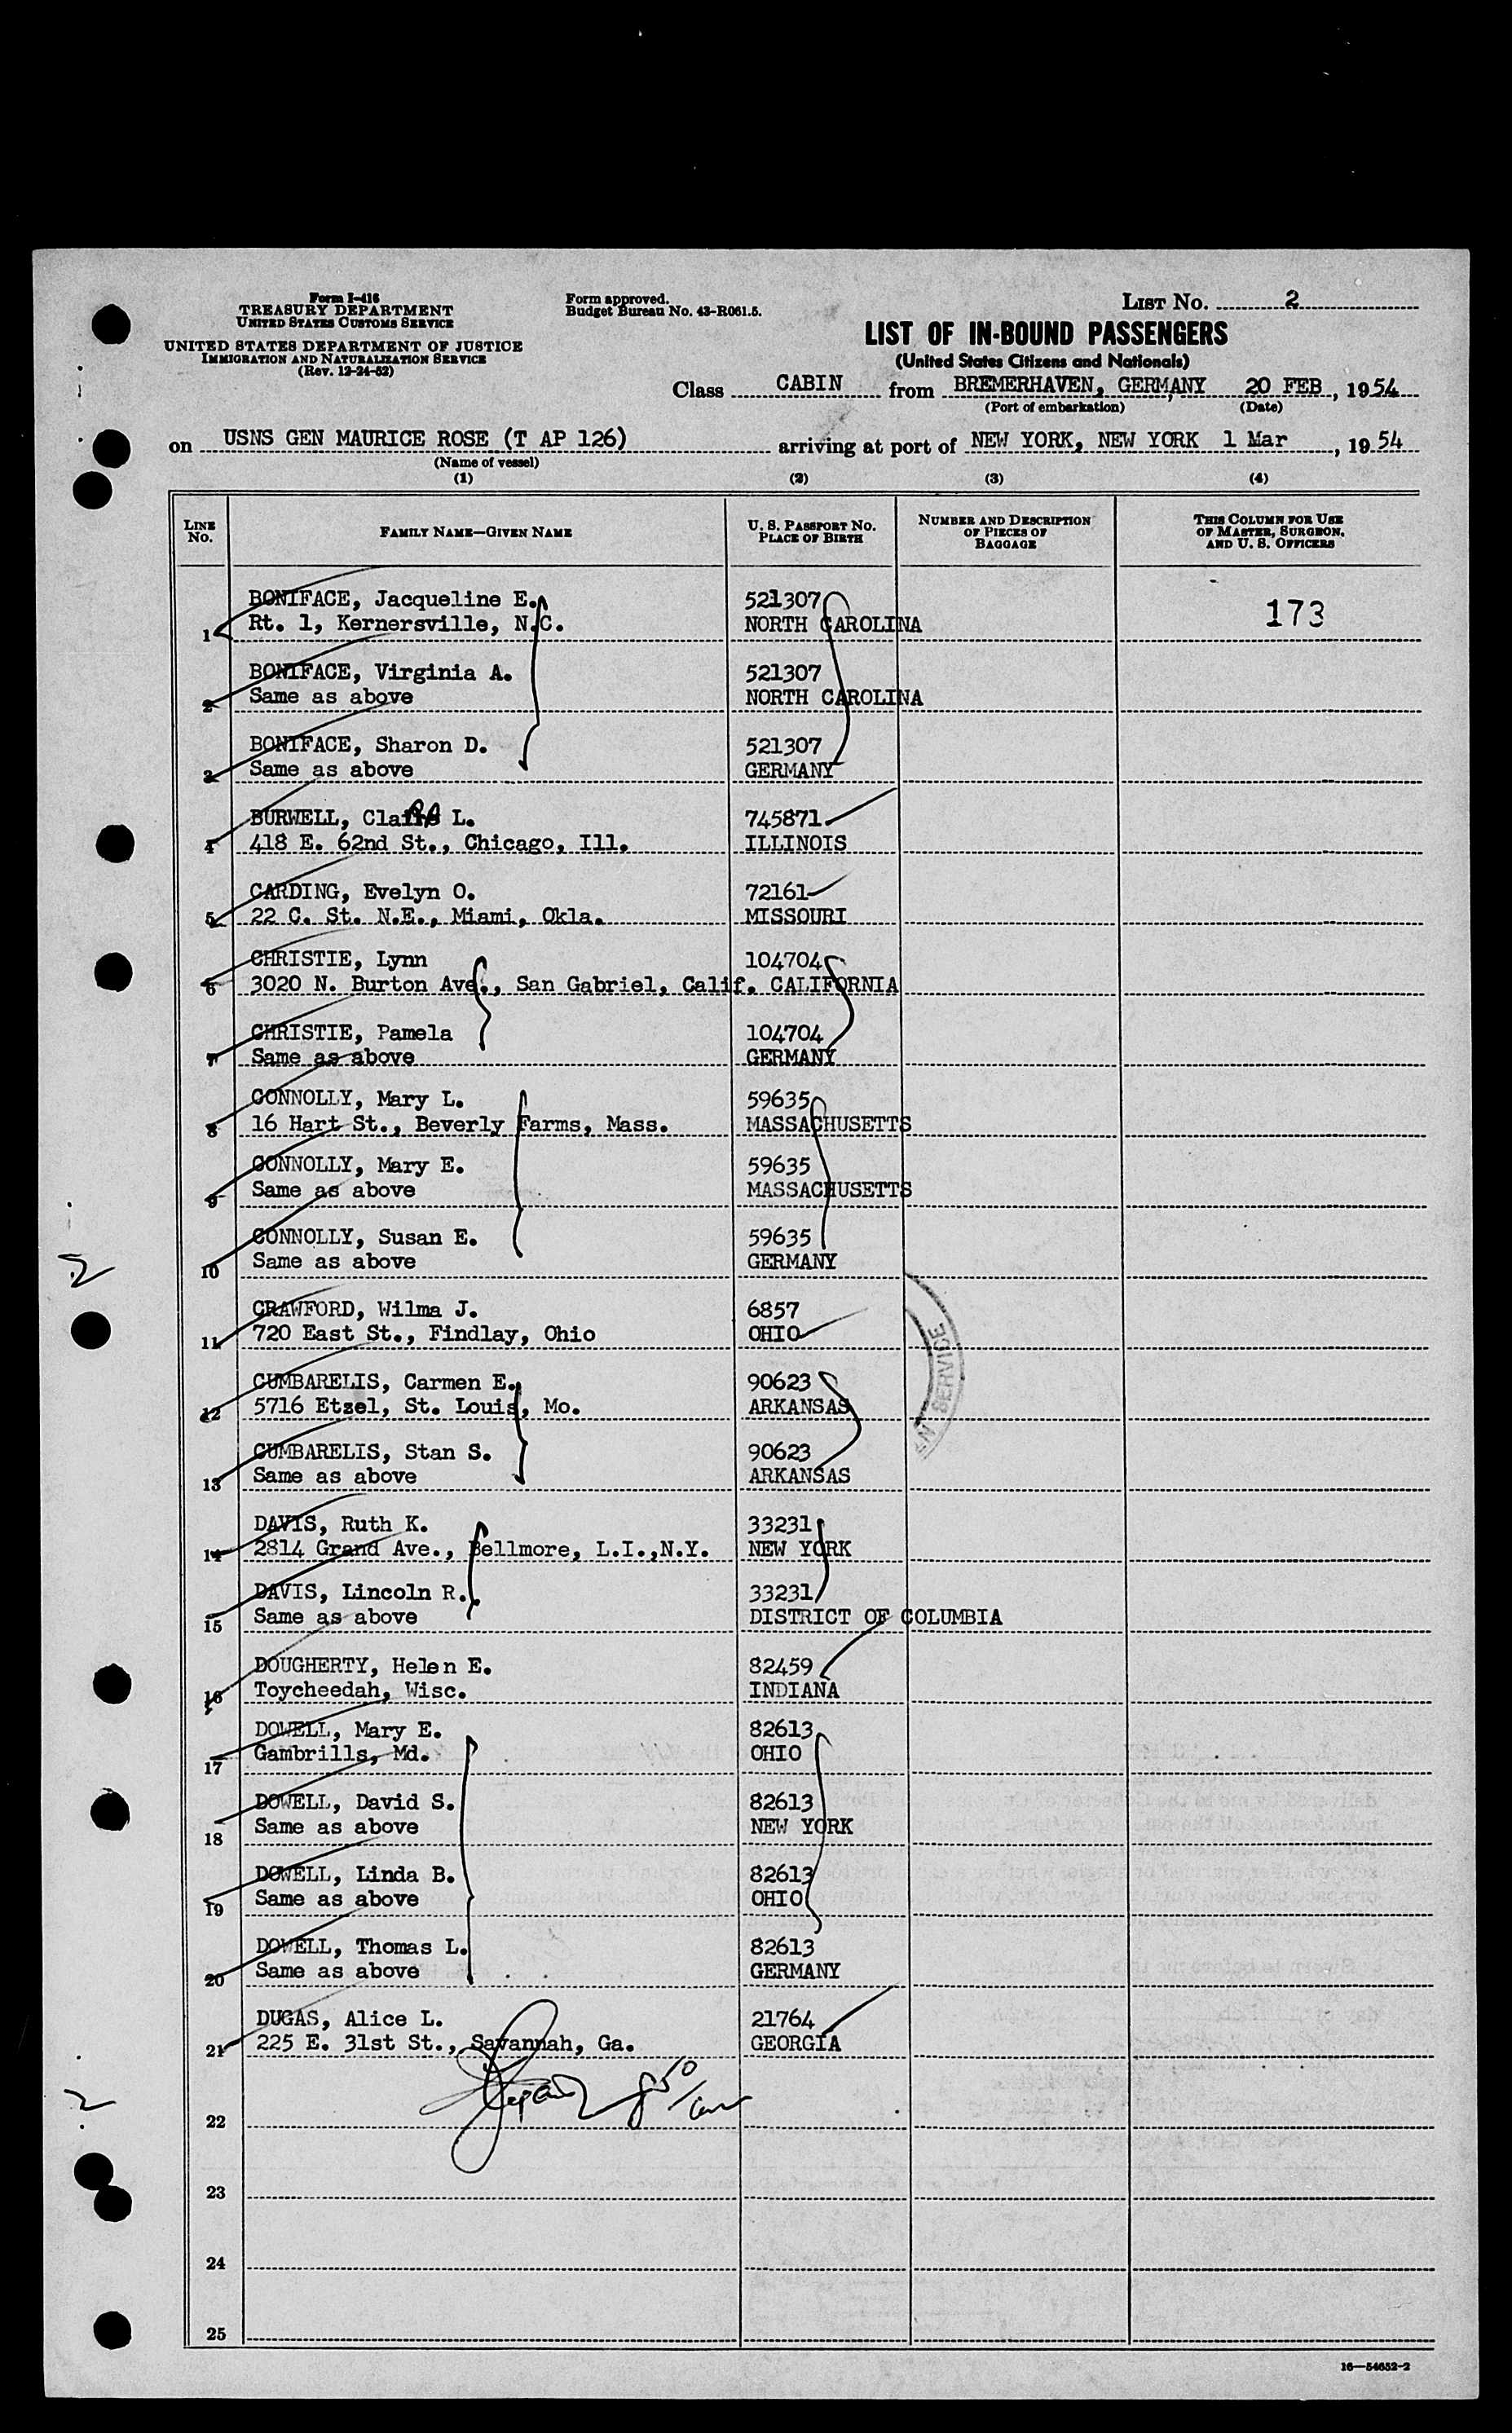 Form I-416
TREASURY DEPARTMENT
UNITED STATES CUSTOMS SERVICE
UNITED STATES DEPARTMENT OF JUSTICE
IMMIGRATION AND NATURALIZATION SERVICE
(Rev. 12-24-52)
Form approved.
Budget Bureau No. 43-R061.5.
LIST No. 2
LIST OF IN-BOUND PASSENGERS
(United States Citizens and Nationals)
Class CABIN from BREMERHAVEN, GERMANY, 20 FEB, 1954
(Port of embarkation) (Date)
on USNS GEN MAURICE ROSE (T AP 126) arriving at port of NEW YORK, NEW YORK 1 Mar, 1954
(Name of vessel)
(1) (2) (3) (4)
LINE No. FAMILY NAME—GIVEN NAME U. S. PASSPORT NO. PLACE OF BIRTH NUMBER AND DESCRIPTION OF PIECES OF BAGGAGE THIS COLUMN FOR USE OF MASTER, SURGEON, AND U. S. OFFICERS
BONIFACE, Jacqueline E. 521307 173
1 Rt. 1, Kernersville, N.C. NORTH CAROLINA
BONIFACE, Virginia A. 521307
2 Same as above NORTH CAROLINA
BONIFACE, Sharon D. 521307
3 Same as above GERMANY
BURWELL, L. 745871
4 418 E. 62nd St., Chicago, Ill. ILLINOIS
CARDING, Evelyn O. 72161
5 22 C. St. N.E., Miami, Okla. MISSOURI
CHRISTIE, Lynn 104704
6 3020 N. Burton Ave., San Gabriel, Calif. CALIFORNIA
CHRISTIE, Pamela 104704
7 Same as above GERMANY
CONNOLLY, Mary L. 59635
8 16 Hart St., Beverly Farms, Mass. MASSACHUSETTS
CONNOLLY, Mary E. 59635
9 Same as above MASSACHUSETTS
CONNOLLY, Susan E. 59635
10 Same as above GERMANY
CRAWFORD, Wilma J. 6857
11 720 East St., Findlay, Ohio OHIO
CUMBARELIS, Carmen E. 90623
12 5716 Etzel, St. Louis, Mo. ARKANSAS
CUMBARELIS, Stan S. 90623
13 Same as above ARKANSAS
DAVIS, Ruth K. 33231
14 2814 Grand Ave., Bellmore, L.I.,N.Y. NEW YORK
DAVIS, Lincoln R. 33231
15 Same as above DISTRICT OF COLUMBIA
DOUGHERTY, Helen E. 82459
16 Toycheedah, Wisc. INDIANA
DOWELL, Mary E. 82613
17 Gambrills, Md. OHIO
DOWELL, David S. 82613
18 Same as above NEW YORK
DOWELL, Linda B. 82613
19 Same as above OHIO
DOWELL, Thomas L. 82613
20 Same as above GERMANY
DUGAS, Alice L. 21764
21 225 E. 31st St., Savannah, Ga. GEORGIA
22
23
24
25
SERVICE
2
2
16—54652-2